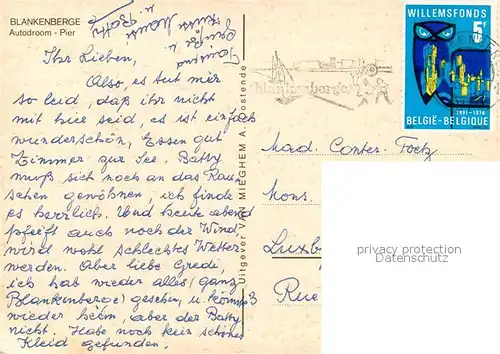 BLANKENBERGE
Autodroom - Pier
Ihr Lieben,
Also, es tut mir
so leid, daß ihr nicht
mit hier seid, es ist einfach
wunderschön, Essen gut
Zimmer zur See. Batty
muß sich noch an das Rau-
schen gewöhnen, ich finde
es herrlich. Und heute abend
pfeift auch noch der Wind,
wird wohl schlechtes Wetter
werden. Aber liebe Gredi,
ich hab wieder alles (ganz
Blankenberge) gesehen, u. könnte
wieder heim, aber der Batty
nicht. Habe noch kein schönes
Kleid gefunden.
Uitgever VAN MIEGHEM A. Oostende
blankenberge
WILLEMSFONDS
5F
1851-1976
BELGIË-BELGIQUE
Mad. Conter.
Mons.
Luxb
Rue
privacy protection